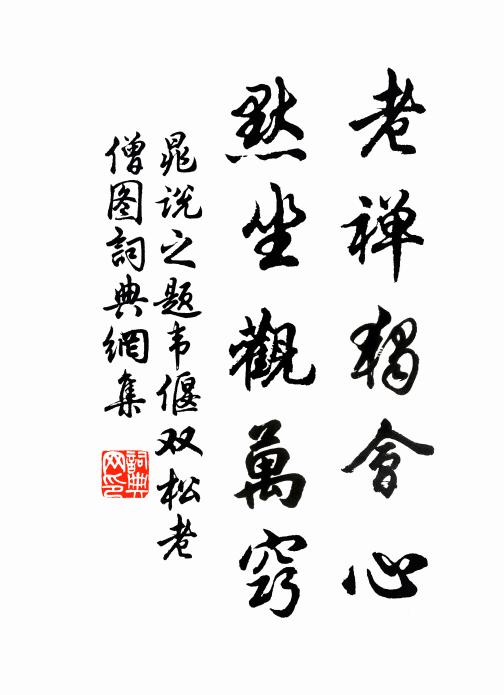 老禅獨會心
默坐觀萬竅
晁说之题韦偃双松老
僧图詞典網集
詞典
网印